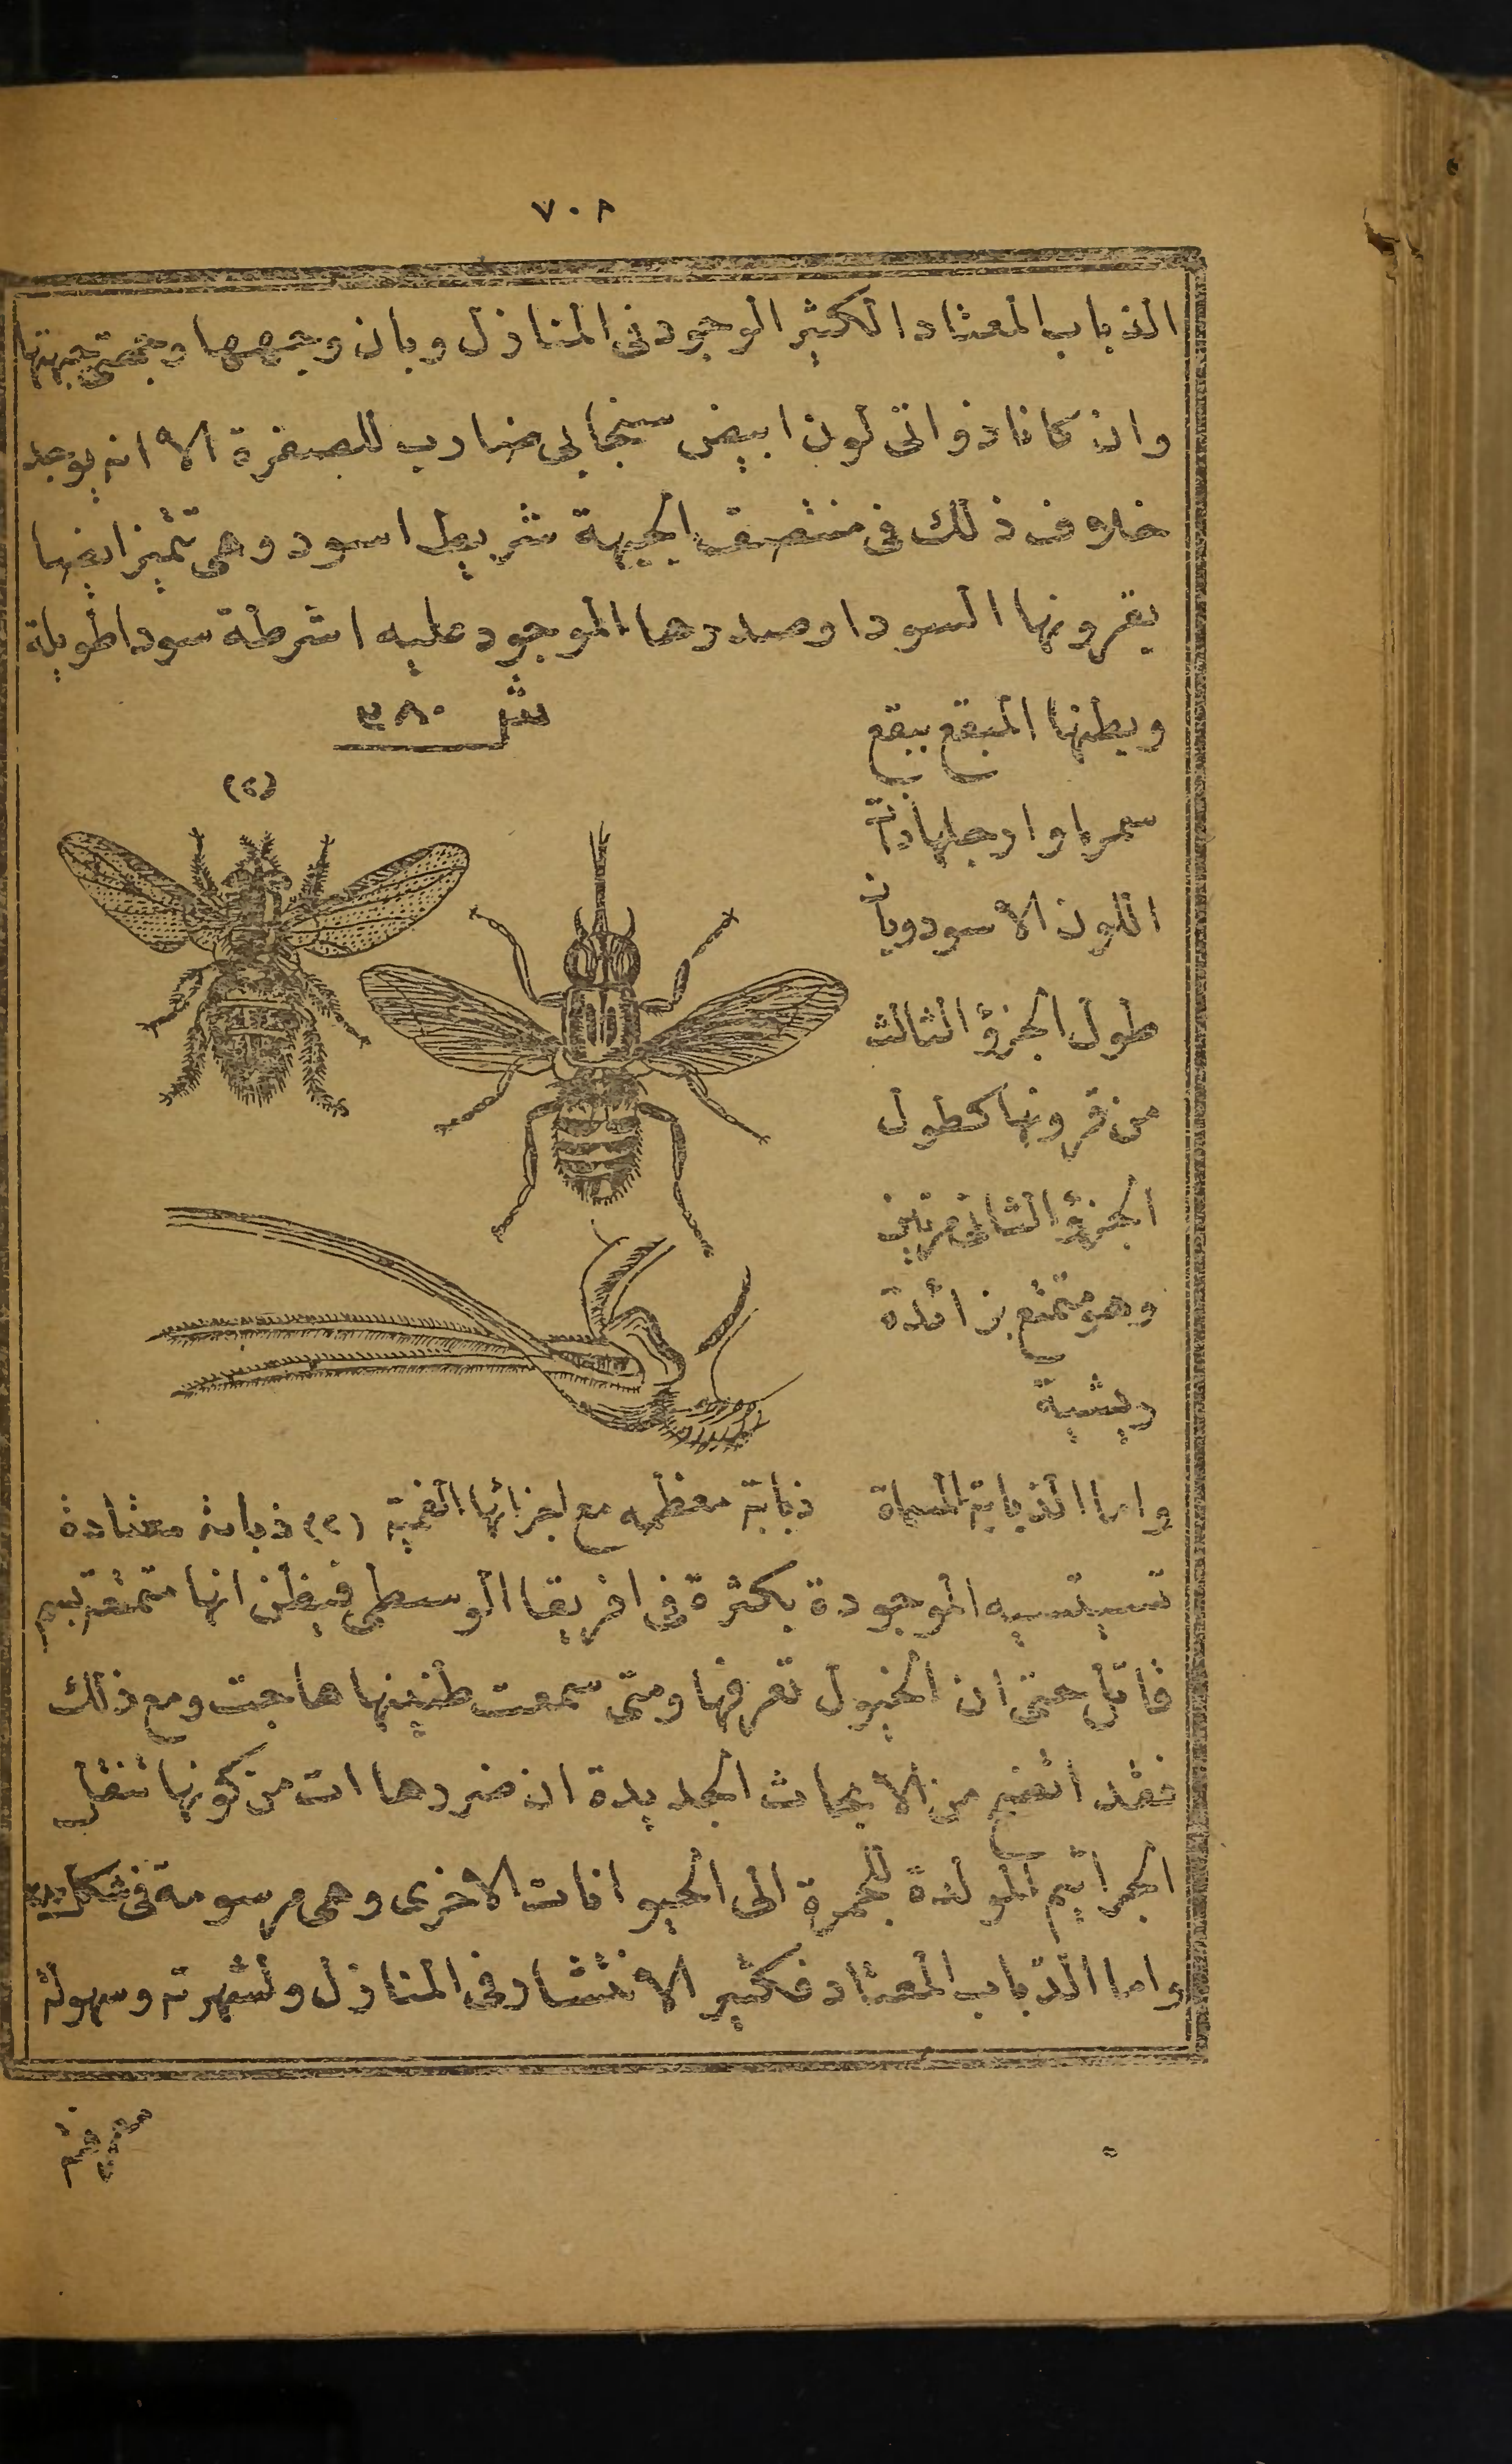 ٧٠٨
الذباب المعتاد الكثير الوجود فى المنازل وبان وجهها وجبهتها
وان كانا ذواتى لون ابيض سنجابى ضارب للصفرة الا انه يوجد
خلاف ذلك فى منتصف الجبهة شريط اسود وهى تتميز ايضا
بقرونها السودا وصدرها الموجود عليه اشرطة سودا طويلة
وبطنها المبقع ببقع
سمرا وارجلها ذات
اللون الاسود وبان
طول الجزؤ الثالث
من قرونها كطول
الجزؤ الثانى مرتين
وهو متمتع بزائدة
ريشية
ش ٣٨٠
(٢)
ذبابة معظمه مع اجزائها الفمية (٢) ذبابة معتادة
واما الذبابة المسماة
تسيتسيه الموجودة بكثرة فى افريقا الوسطى فيظن انها متمتعة بسم
قاتل حتى ان الخيول تعرفها ومتى سمعت طنينها هاجت ومع ذلك
فقد اتضح من الابحاث الجديدة ان ضررها ات من كونها تنقل
الجراثيم المولدة للجمرة الى الحيوانات الاخرى وهى مرسومة فى شكل ٣٨٠
واما الذباب المعتاد فكثير الانتشار فى المنازل ولشهرته وسهولة
معرفته